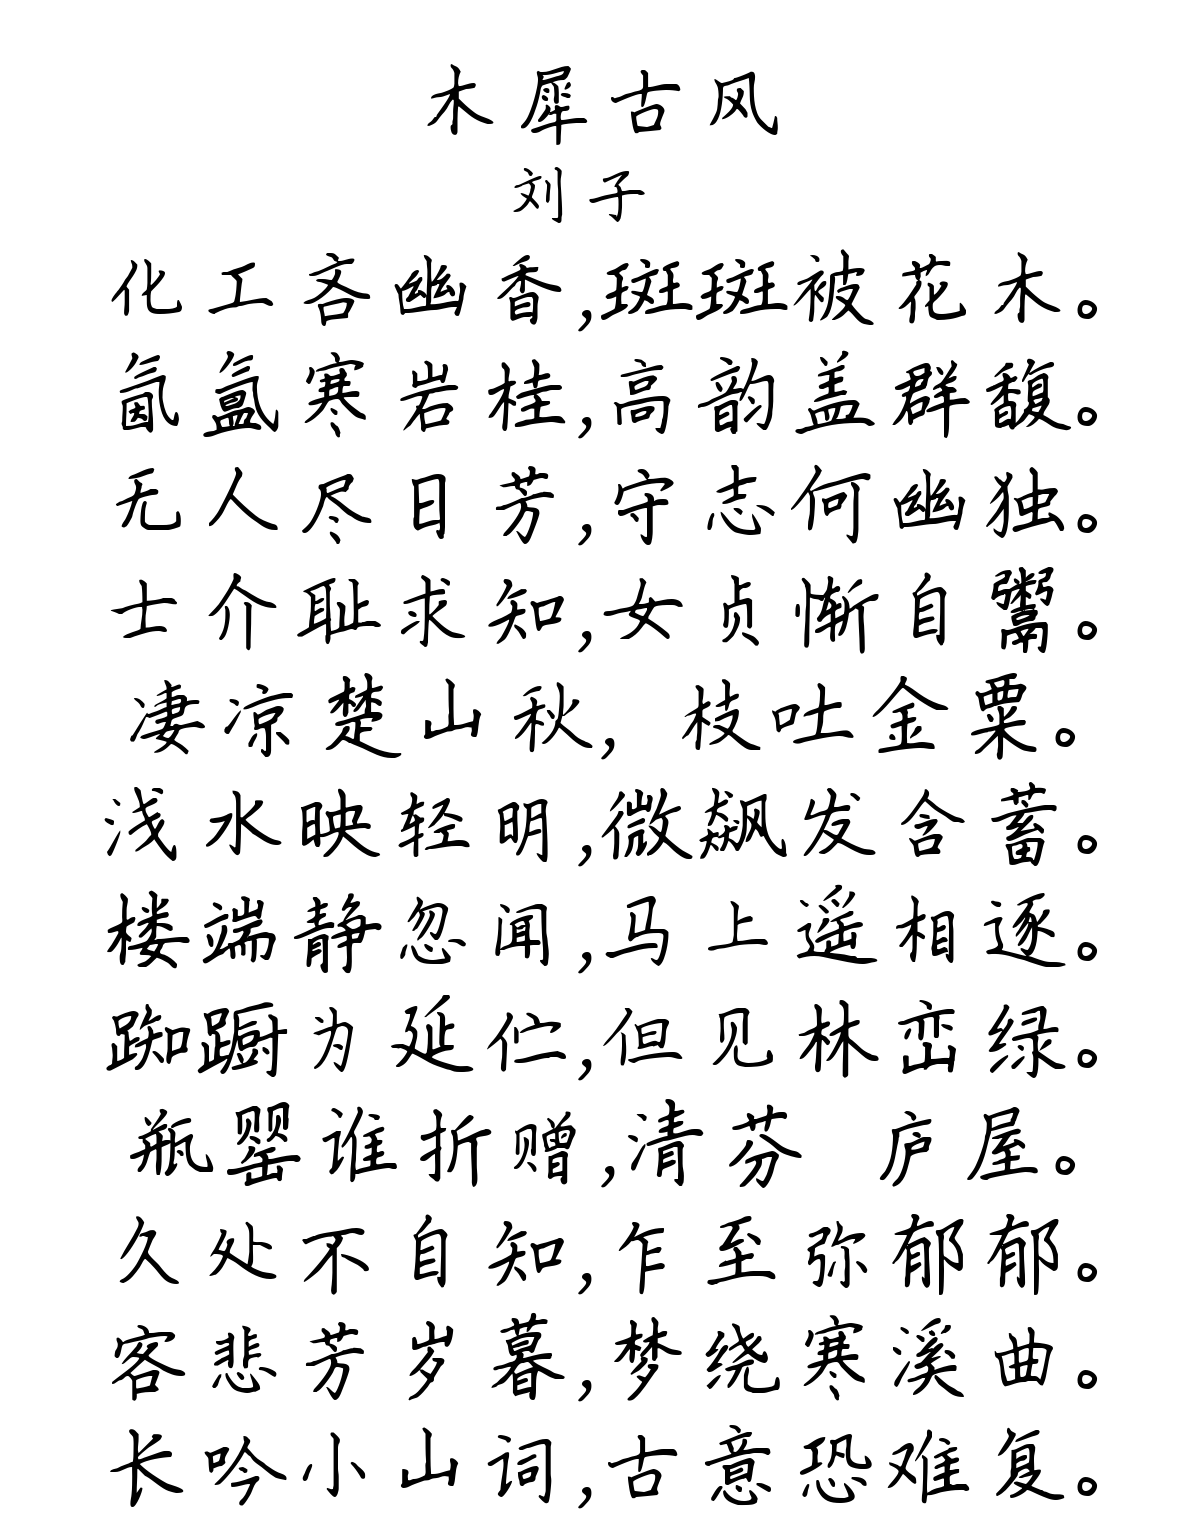 木犀古风
刘子
化工吝幽香,斑斑被花木。
氤氲寒岩桂,高韵盖群馥。
无人尽日芳,守志何幽独。
士介耻求知,女贞惭自鬻。
凄凉楚山秋, 枝吐金粟。
浅水映轻明,微飙发含蓄。
楼端静忽闻,马上遥相逐。
踟蹰为延伫,但见林峦绿。
瓶罂谁折赠,清芬 庐屋。
久处不自知,乍至弥郁郁。
客悲芳岁暮,梦绕寒溪曲。
长吟小山词,古意恐难复。